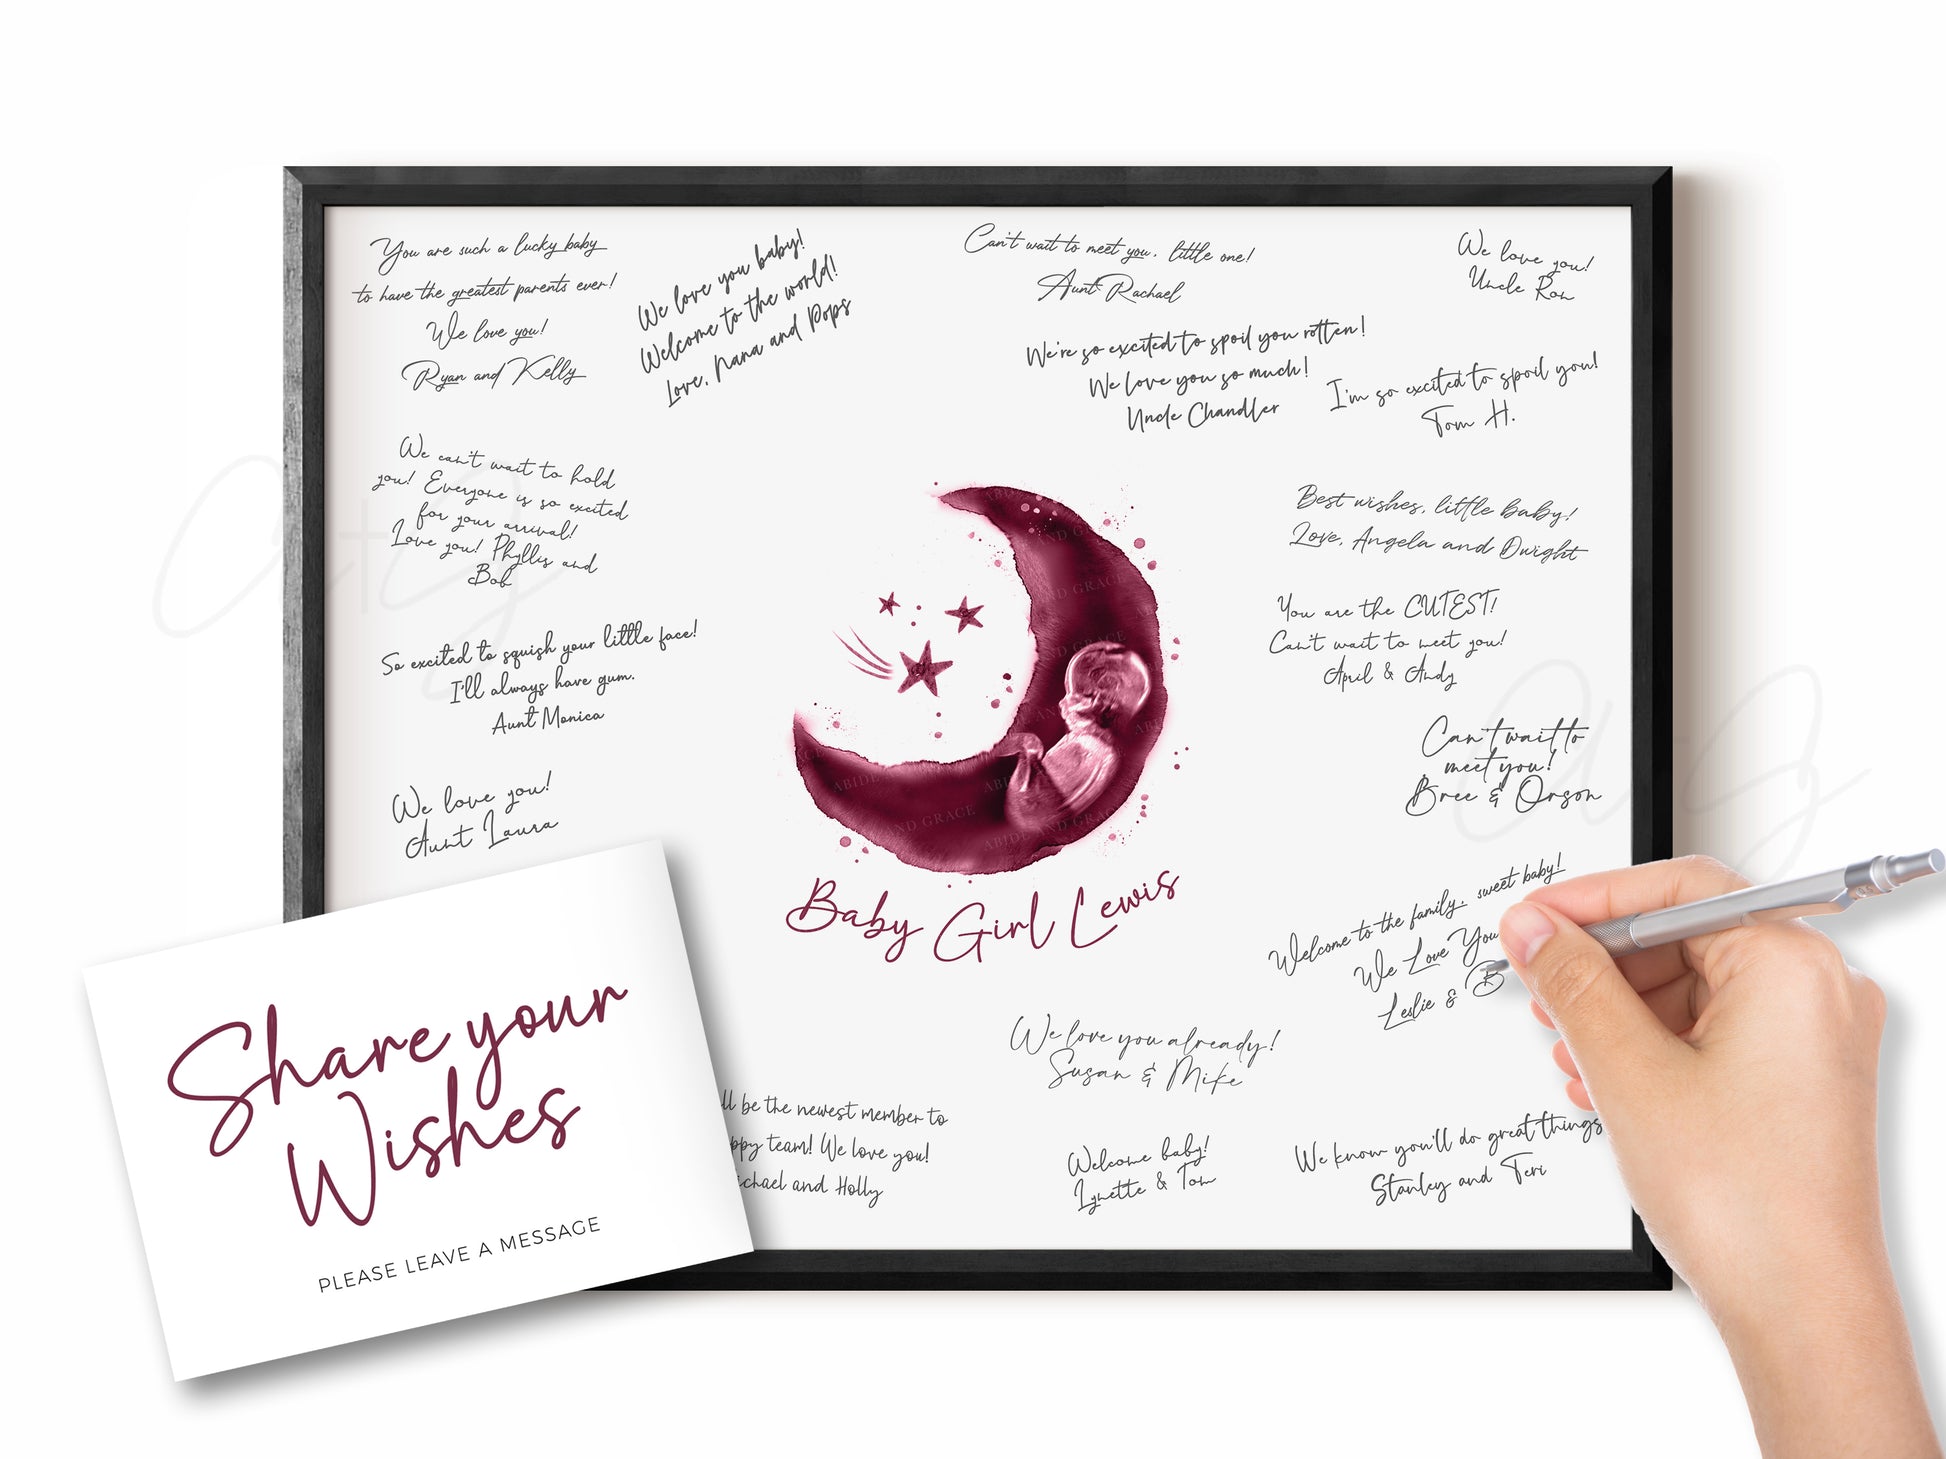 You are such a lucky baby
to have the greatest parents ever!
We love you!
Ryan and Kelly
We love you baby!
Welcome to the world!
Love, Nana and Pops
Can't wait to meet you, little one!
Aunt Rachael
We love you!
Uncle Ron
We're so excited to spoil you rotten!
We love you so much!
Uncle Chandler
I'm so excited to spoil you!
Tom H.
We can't wait to hold
you! Everyone is so excited
for your arrival!
Love you! Phyllis and
Bob
Best wishes, little baby!
Love, Angela and Dwight
You are the CUTEST!
Can't wait to meet you!
April & Andy
So excited to squish your little face!
I'll always have gum.
Aunt Monica
Can't wait to
meet you!
Bree & Orson
We love you!
Aunt Laura
ABIDE AND GRACE
Baby Girl Lewis
Welcome to the family, sweet baby!
We Love You
Leslie & B
We love you already!
Susan & Mike
ll be the newest member to
ppy team! We love you!
ichael and Holly
Welcome baby!
Lynette & Tom
We know you'll do great things
Stanley and Teri
Share your
Wishes
PLEASE LEAVE A MESSAGE
AtG
AtG